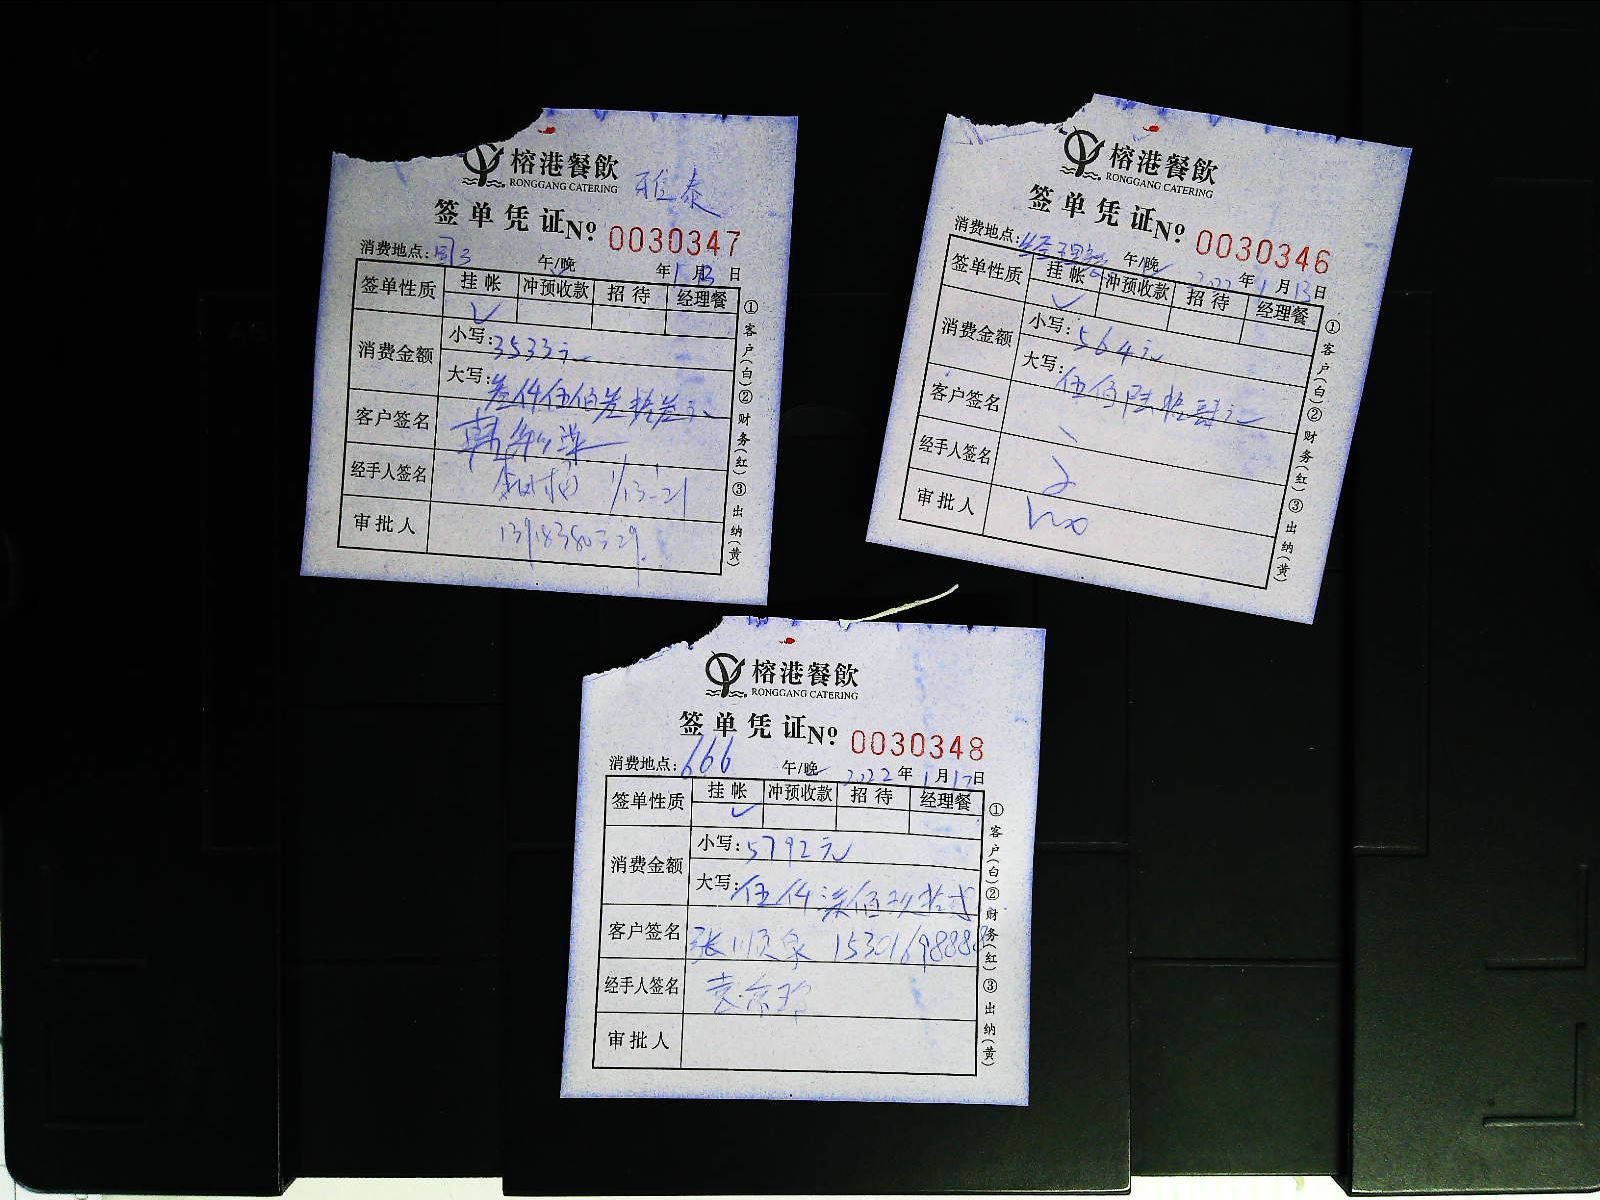 榕港餐飲
RONGGANG CATERING
雅泰
签单凭证 Nº 0030347
消费地点: 午/晚 年1月13日
签单性质 挂帐 冲预收款 招待 经理餐
✓
消费金额 小写: 3533元
大写: 叁仟伍佰叁拾叁元
客户签名 韩
经手人签名 1/13-21
审批人
①客户(白)②财务(红)③出纳(黄)
榕港餐飲
RONGGANG CATERING
签单凭证 Nº 0030346
消费地点: 经理餐 午/晚 2022年1月13日
签单性质 挂帐 冲预收款 招待 经理餐
✓
消费金额 小写: 564元
大写: 伍佰陆拾肆元
客户签名
经手人签名
审批人
①客户(白)②财务(红)③出纳(黄)
榕港餐飲
RONGGANG CATERING
签单凭证 Nº 0030348
消费地点: 666 午/晚 2022年1月17日
签单性质 挂帐 冲预收款 招待 经理餐
✓
消费金额 小写: 5792元
大写: 伍仟柒佰玖拾贰
客户签名 张顺泉 15301698888
经手人签名
审批人
①客户(白)②财务(红)③出纳(黄)